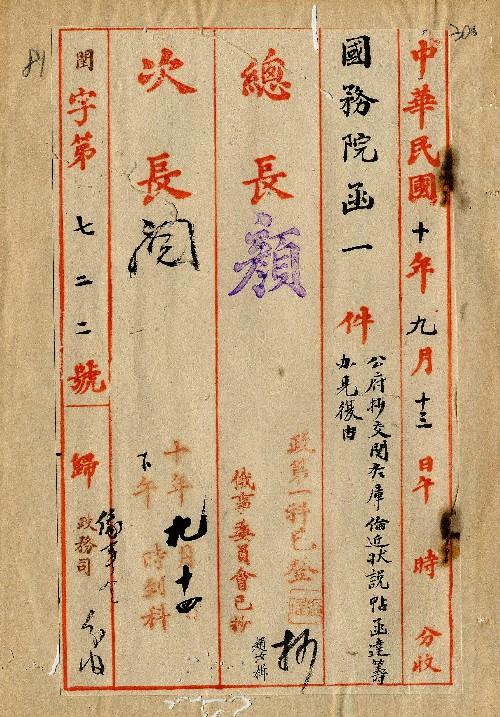 中華民國十年九月十三日午時分收
國務院函一件
公府抄交關於庫倫近狀說帖函達籌
辦見復由
總長顏
政第一科已登
俄事委員會已抄
抄
次長閱
十年九月十四
下午時到科
閏字第七二二號歸政務司
81